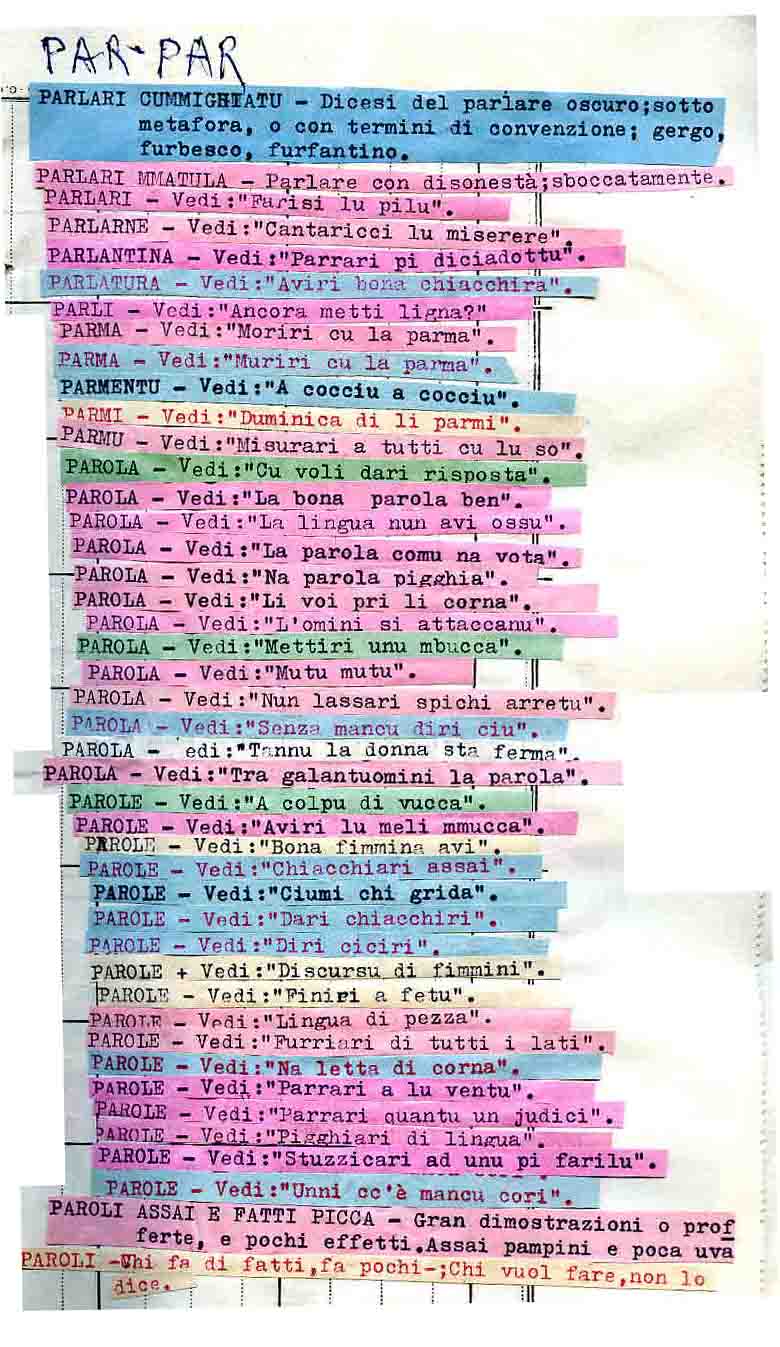 PAR-PAR
PARLARI CUMMIGHIATU - Dicesi del parlare oscuro;sotto
metafora, o con termini di convenzione; gergo,
furbesco, furfantino.
PARLARI MMATULA - Parlare con disonestà;sboccatamente.
PARLARI - Vedi:"Farisi lu pilu".
PARLARNE - Vedi:"Cantaricci lu miserere".
PARLANTINA - Vedi:"Parrari pi diciadottu".
PARLATURA - Vedi:"Aviri bona chiacchira".
PARLI - Vedi:"Ancora metti ligna?"
PARMA - Vedi:"Moriri cu la parma".
PARMA - Vedi:"Muriri cu la parma".
PARMENTU - Vedi:"A cocciu a cocciu".
PARMI - Vedi:"Duminica di li parmi".
PARMU - Vedi:"Misurari a tutti cu lu so".
PAROLA - Vedi:"Cu voli dari risposta".
PAROLA - Vedi:"La bona parola ben".
PAROLA - Vedi:"La lingua nun avi ossu".
PAROLA - Vedi:"La parola comu na vota".
PAROLA - Vedi:"Na parola pigghia".
PAROLA - Vedi:"Li voi pri li corna".
PAROLA - Vedi:"L'omini si attaccanu".
PAROLA - Vedi:"Mettiri unu mbucca".
PAROLA - Vedi:"Mutu mutu".
PAROLA - Vedi:"Nun lassari spichi arretu".
PAROLA - Vedi:"Senza mancu diri ciu".
PAROLA - edi:"Tannu la donna sta ferma".
PAROLA - Vedi:"Tra galantuomini la parola".
PAROLE - Vedi:"A colpu di vucca".
PAROLE - Vedi:"Aviri lu meli mmucca".
PAROLE - Vedi:"Bona fimmina avi".
PAROLE - Vedi:"Chiacchiari assai".
PAROLE - Vedi:"Ciumi chi grida".
PAROLE - Vedi:"Dari chiacchiri".
PAROLE - Vedi:"Diri ciciri".
PAROLE + Vedi:"Discursu di fimmini".
PAROLE - Vedi:"Finiri a fetu".
PAROLE - Vedi:"Lingua di pezza".
PAROLE - Vedi:"Furriari di tutti i lati".
PAROLE - Vedi:"Na letta di corna".
PAROLE - Vedi:"Parrari a lu ventu".
PAROLE - Vedi:"Parrari quantu un judici".
PAROLE - Vedi:"Pigghiari di lingua".
PAROLE - Vedi:"Stuzzicari ad unu pi farilu".
PAROLE - Vedi:"Unni cc'è mancu cori".
PAROLI ASSAI E FATTI PICCA - Gran dimostrazioni o prof
ferte, e pochi effetti.Assai pampini e poca uva
PAROLI -Chi fa di fatti,fa pochi-;Chi vuol fare,non lo
dice.